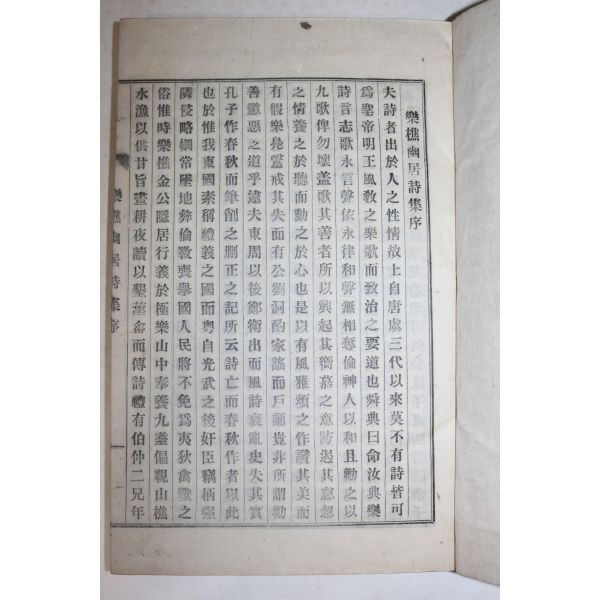 樂樵幽居詩集序
夫詩者出於人之性情故上自唐虞三代以來莫不有詩皆可
爲聖帝明王風敎之樂歌而致治之要道也舜典曰命汝典樂
詩言志歌永言聲依永律和聲無相奪倫神人以和且勸之以
九歌俾勿壞盖歌其善者所以興起其嚮慕之意防遏其怠忽
之情養之於聽而動之於心也是以有風雅頌之作讚其美而
有假樂鳧鷖戒其失而有公劉泂酌家謠而戶誦豈非所謂勸
善懲惡之道乎逮夫東周以後鄭衛出而風詩衰亂史失其實
孔子作春秋而筆削之删正之記所云詩亡而春秋作者以此
也於惟我東國素稱禮義之國而粤自光武之後奸臣竊柄强
隣侵略綱常墜地彜倫斁喪擧國人民將不免爲夷狄禽獸之
俗惟時樂樵金公隱居行義於極樂山中奉養九耋偏親山樵
水漁以供甘旨晝耕夜讀以墾菑畬而傳詩禮有伯仲二兄年
樂樵幽居詩集序
一